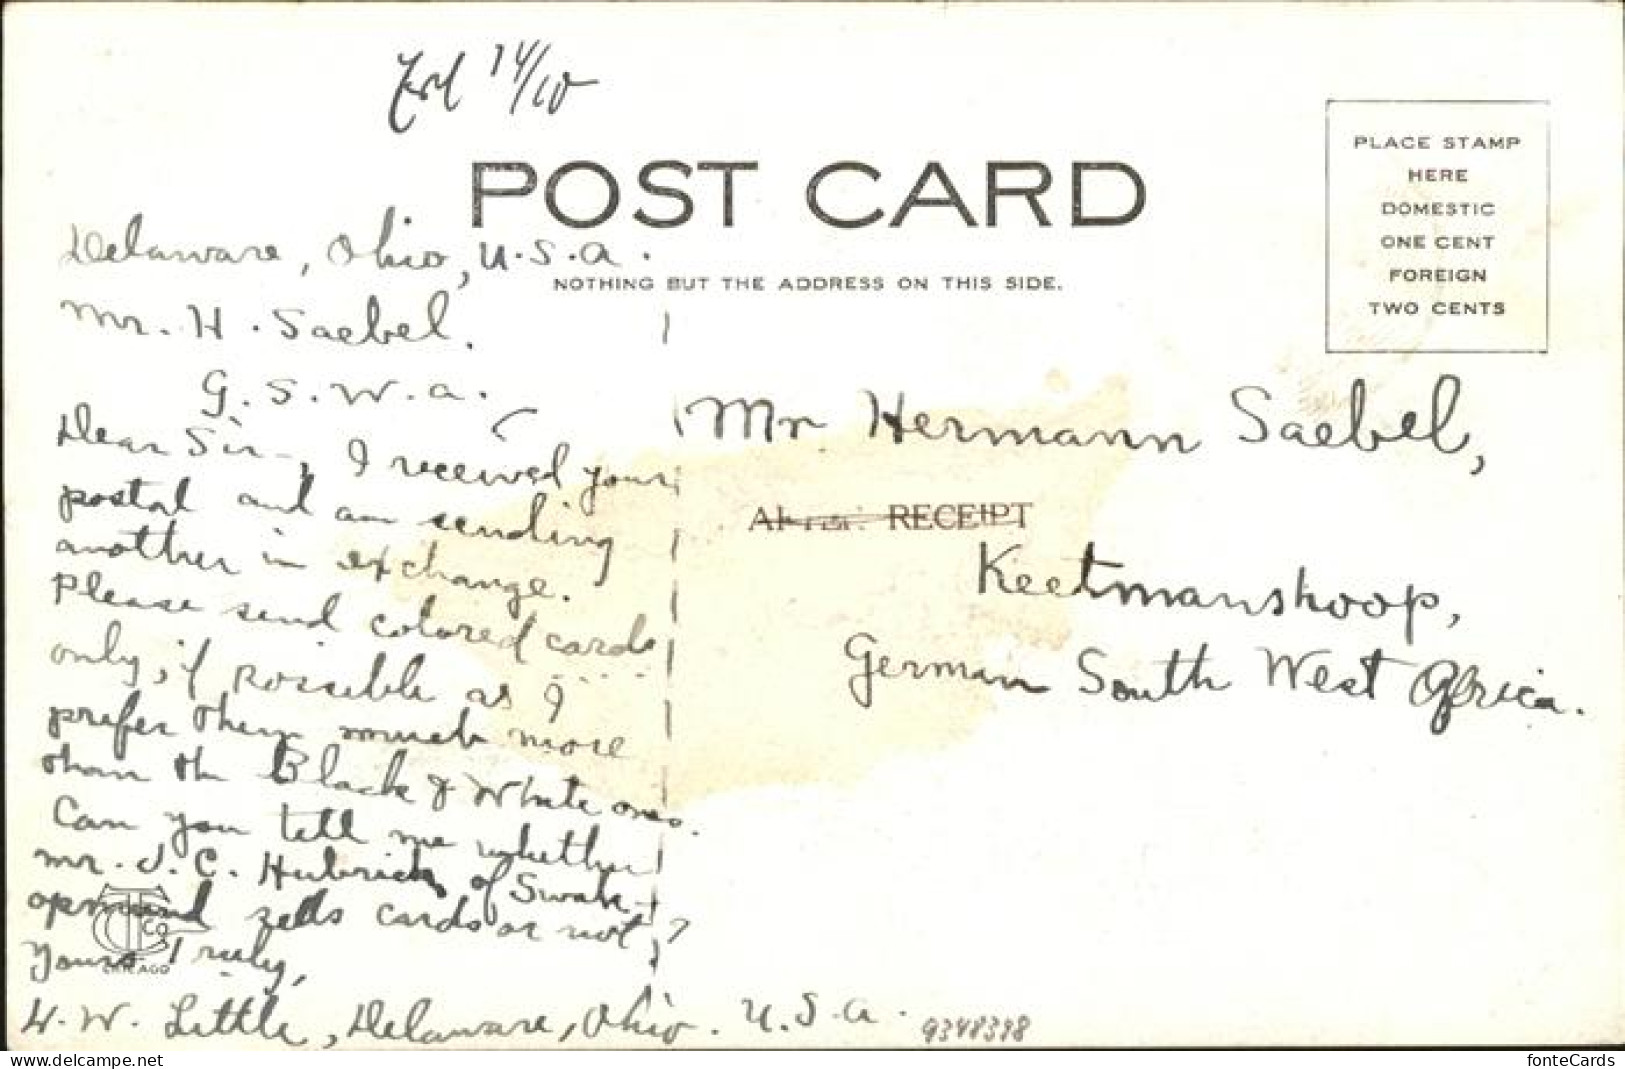 14/10
POST CARD
PLACE STAMP
HERE
DOMESTIC
ONE CENT
FOREIGN
TWO CENTS
NOTHING BUT THE ADDRESS ON THIS SIDE.
Delaware, Ohio, U.S.A.
Mr. H. Saebel.
G.S.W.A.
Dear Sir-, I received your
postal and am sending
another in exchange.
Please send colored cards
only, if possible as I
prefer them much more
than the Black & White ones.
Can you tell me whether
Mr. J. C. Hubrich of Swak-
opmund sells cards or not?
Yours Truly,
W. W. Little, Delaware, Ohio. U.S.A.
Mr Hermann Saebel,
RECEIPT
Keetmanshoop,
German South West Africa.
CO
CHICAGO
9348398
fonteCards